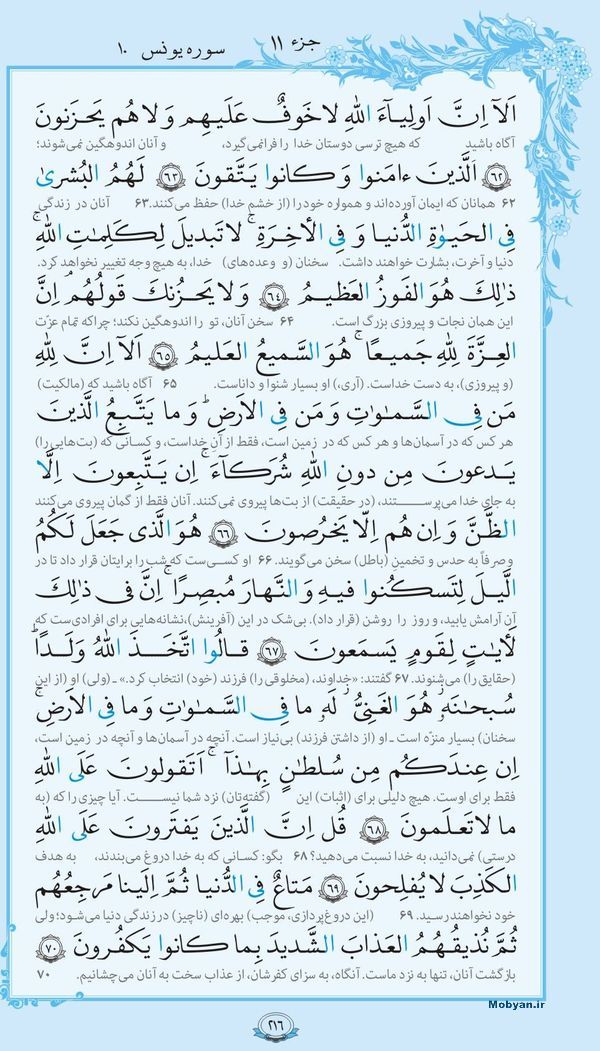 جزء ۱۱
سوره یونس ۱۰
اَلَآ اِنَّ اَولِیـآءَ اللهِ لا خَوفٌ عَلَیهِم وَ لا هُم یَحزَنونَ
آگاه باشید که هیچ ترسی دوستان خدا را فرانمی‌گیرد، و آنان اندوهگین نمی‌شوند؛
﴿۶۲﴾ اَلَّذینَ ءامَنوا وَ کانوا یَتَّقونَ ﴿۶۳﴾ لَهُمُ البُشریٰ
۶۲ همانان که ایمان آورده‌اند و همواره خود را (از خشم خدا) حفظ می‌کنند. ۶۳ آنان در زندگی
فِی الحَیوٰةِ الدُّنیا وَ فِی الأخِرَةِ ۚ لا تَبدیلَ لِکَلِماتِ اللهِ ۚ
دنیا و آخرت، بشارت خواهند داشت. سخنان (و وعده‌های) خدا، به هیچ وجه تغییر نخواهد کرد.
ذٰلِکَ هُوَ الفَوزُ العَظیمُ ﴿۶۴﴾ وَ لا یَحزُنکَ قَولُهُم ۘ اِنَّ
این همان نجات و پیروزی بزرگ است. ۶۴ سخن آنان، تو را اندوهگین نکند؛ چراکه تمام عزّت
العِزَّةَ لِلّٰهِ جَمیعًا ۚ هُوَ السَّمیعُ العَلیمُ ﴿۶۵﴾ اَلَآ اِنَّ لِلّٰهِ
(و پیروزی)، به دست خداست. (آری،) او بسیار شنوا و داناست. ۶۵ آگاه باشید که (مالکیت)
مَن فِی السَّمـٰوٰتِ وَ مَن فِی الاَرضِ ۗ وَ ما یَتَّبِعُ الَّذینَ
هر کس که در آسمان‌ها و هر کس که در زمین است، فقط از آنِ خداست، و کسانی که (بت‌هایی را)
یَدعونَ مِن دونِ اللهِ شُرَکآءَ ۚ اِن یَتَّبِعونَ اِلَّا
به جای خدا می‌پرستند، (در حقیقت) از بت‌ها پیروی نمی‌کنند. آنان فقط از گمان پیروی می‌کنند
الظَّنَّ وَ اِن هُم اِلّا یَخرُصونَ ﴿۶۶﴾ هُوَ الَّذی جَعَلَ لَکُمُ
و صرفاً به حدس و تخمینِ (باطل) سخن می‌گویند. ۶۶ او کسی‌ست که شب را برایتان قرار داد تا در
الَّیلَ لِتَسکُنوا فیهِ وَ النَّهارَ مُبصِرًا ۚ اِنَّ فی ذٰلِکَ
آن آرامش یابید، و روز را روشن (قرار داد). بی‌شک در این (آفرینش)، نشانه‌هایی برای افرادی‌ست که
لَأیاتٍ لِقَومٍ یَسمَعونَ ﴿۶۷﴾ قالُوا اتَّخَذَ اللهُ وَلَدًا ۗ
(حقایق را) می‌شنوند. ۶۷ گفتند: «خداوند، (مخلوقی را) فرزند (خود) انتخاب کرد.» ـ (ولی) او (از این
سُبحٰنَهٗ ۖ هُوَ الغَنِیُّ ۖ لَهٗ ما فِی السَّمـٰوٰتِ وَ ما فِی الاَرضِ ۚ
سخنان) بسیار منزّه است ـ او (از داشتن فرزند) بی‌نیاز است. آنچه در آسمان‌ها و آنچه در زمین است،
اِن عِندَکُم مِن سُلطـٰنٍ بِهـٰذا ۚ اَتَقولونَ عَلَی اللهِ
فقط برای اوست. هیچ دلیلی برای (اثبات) این (گفته‌تان) نزد شما نیست. آیا چیزی را که (به
ما لا تَعلَمونَ ﴿۶۸﴾ قُل اِنَّ الَّذینَ یَفتَرونَ عَلَی اللهِ
درستی) نمی‌دانید، به خدا نسبت می‌دهید؟ ۶۸ بگو: کسانی که به خدا دروغ می‌بندند، به هدف
الکَذِبَ لا یُفلِحونَ ﴿۶۹﴾ مَتاعٌ فِی الدُّنیا ثُمَّ اِلَینا مَرجِعُهُم
خود نخواهند رسید. ۶۹ (این دروغ‌پردازی، موجب) بهره‌ای (ناچیز) در زندگی دنیا می‌شود؛ ولی
ثُمَّ نُذیقُهُمُ العَذابَ الشَّدیدَ بِما کانوا یَکفُرونَ ﴿۷۰﴾
بازگشت آنان، تنها به نزد ماست. آنگاه، به سزای کفرشان، از عذاب سخت به آنان می‌چشانیم. ۷۰
۲۱۶
Mobyan.ir